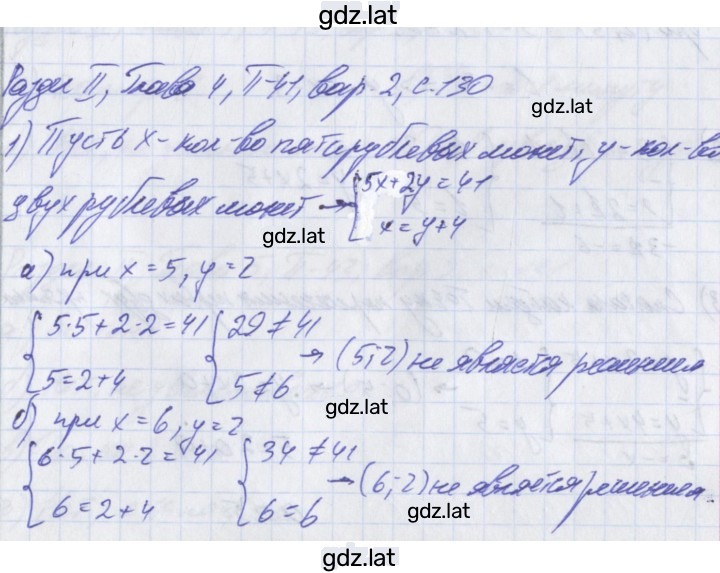 gdz.lat
Раздел II, Глава 4, П-41, вар. 2, с. 130
gdz.lat
1) Пусть x - кол-во пятирублевых монет, y - кол-во
двух рублевых монет → {5x+2y=41
x=y+4
gdz.lat
а) при x=5, y=2
{5·5+2·2=41 {29≠41
→ (5;2) не является решением
5=2+4 5≠6
gdz.lat
б) при x=6, y=2
{6·5+2·2=41 {34≠41
→ (6;2) не является решением.
6=2+4 6=6
gdz.lat
gdz.lat